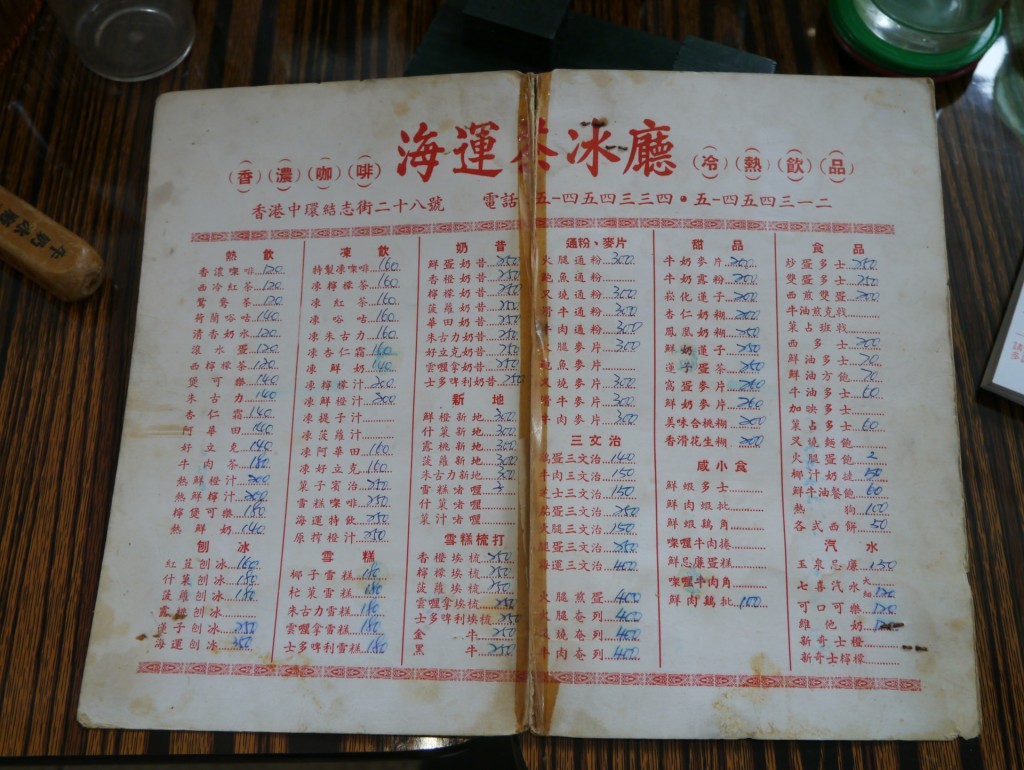 海運茶冰廳
(香)(濃)(咖)(啡)
(冷)(熱)(飲)(品)
香港中環結志街二十八號 電話 五-四五四三三四•五-四五四三一二
熱飲
香濃㗎啡 120
西冷紅茶 120
鴛鴦茶 120
荷蘭唂咕 140
清香奶水 120
滾水蛋 120
西檸檬茶 120
煲可樂 140
朱古力 140
杏仁霜 140
阿華田 140
好立克 140
牛肉茶 180
熱鮮橙汁 200
熱鮮檸汁 200
檸煲可樂 180
熱鮮奶 140
刨冰
紅荳刨冰 180
什菓刨冰 180
菠蘿刨冰 180
雪橙刨冰
蓮子刨冰 250
海運刨冰 250
凍飲
特製凍㗎啡 160
凍檸檬茶 160
凍紅茶 160
凍唂咕 160
凍朱古力 160
凍杏仁霜 160
凍鮮奶 140
凍檸檬汁 200
凍鮮橙汁 200
凍提子汁
凍菠蘿汁
凍阿華田 160
凍好立克 160
菓子賓治 250
雪糕㗎啡 250
海運特飲 250
原榨橙汁 250
雪糕
椰子雪糕 180
杧菓雪糕 180
朱古力雪糕 180
雲喱拿雪糕 180
士多啤利雪糕 180
奶昔
鮮蛋奶昔 250
香橙奶昔 250
檸檬奶昔 250
菠蘿奶昔 250
華田奶昔 250
朱古力奶昔 250
好立克奶昔 250
雲喱拿奶昔 250
士多啤利奶昔 250
新地
鮮橙新地 300
什菓新地 300
露桃新地 300
菠蘿新地 300
朱古力新地 300
雪糕啫喱
什菓啫喱
菓汁啫喱
雪糕梳打
香橙埃梳 250
檸檬埃梳 250
菠蘿埃梳 250
雲喱拿埃梳 250
士多啤利埃梳 250
金牛 250
黑牛 250
通粉、麥片
火腿通粉 300
鮑魚通粉
叉燒通粉 300
滑牛通粉 300
牛肉通粉 300
火腿麥片 300
鮑魚麥片
叉燒麥片 300
滑牛麥片 300
牛肉麥片 300
三文治
鷄蛋三文治 140
牛肉三文治 150
芝士三文治 150
茄蛋三文治 250
火腿三文治 150
腿蛋三文治 250
海運三文治 400
火腿煎蛋 400
火腿奄列 400
叉燒奄列 400
牛肉奄列 400
甜品
牛奶麥片 200
牛奶露粉 200
崧化蓮子 200
杏仁奶糊 200
鳳凰奶糊 250
鮮奶蓮子 250
蓮子蛋茶 250
窩蛋麥片 240
鮮奶麥片 260
美味合桃糊 200
香滑花生糊 200
咸小食
鮮蝦多士
鮮肉蝦批
鮮蝦鷄角
㗎喱牛肉捲
鮮忌廉蛋糕
㗎喱牛肉角
鮮肉鷄批 100
食品
炒蛋多士 250
雙蛋多士 250
西煎雙蛋 200
牛油煎克戟
菓占班戟
西多士 200
鮮油多士 70
鮮油方飽 70
牛油多士 60
加央多士
菓占多士 60
叉燒麵飽
火腿蛋飽 2
椰汁奶撻 150
鮮牛油餐飽 60
熱狗 100
各式西餅 50
汽水
玉泉忌廉 150
七喜汽水 120
可口可樂 120
維他奶 120
新奇士橙
新奇士檸檬